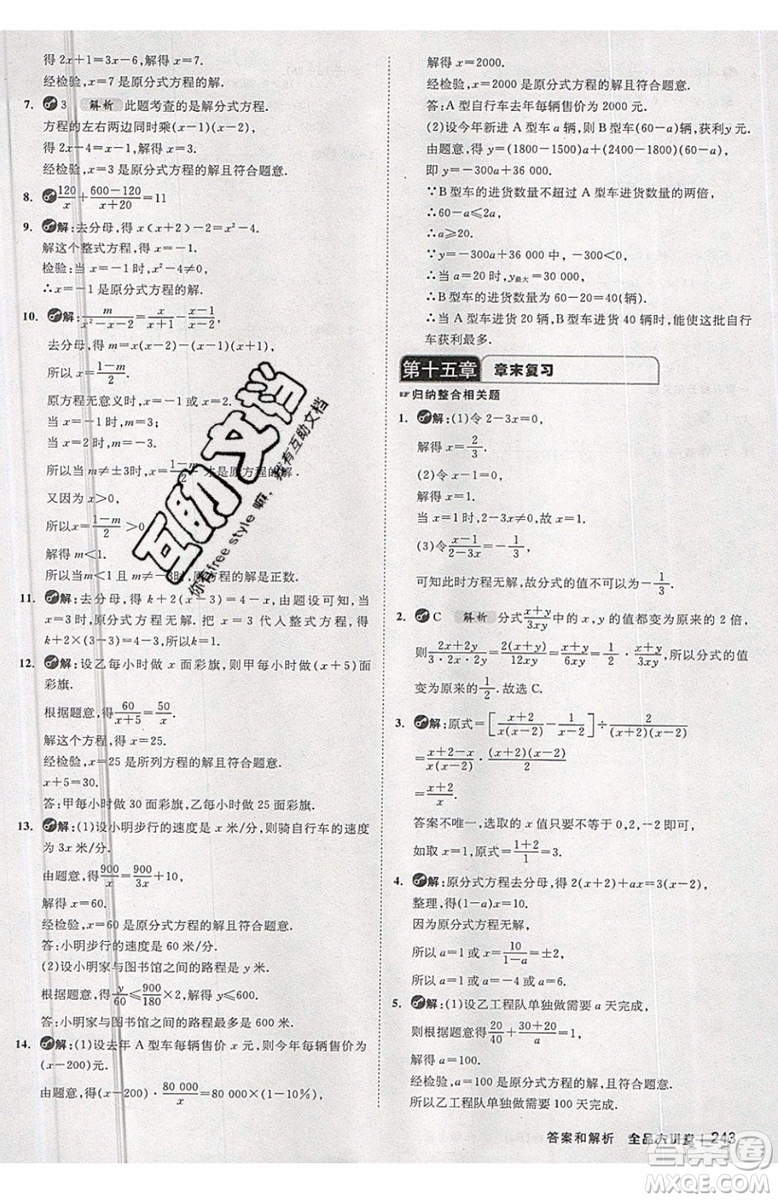 得 2x+1=3x-6,解得 x=7.
经检验,x=7 是原分式方程的解.
7. 3 解析 此题考查的是解分式方程.
方程的左右两边同时乘(x-1)(x-2),
得 2x-4=x-1,解得 x=3.
经检验,x=3 是原分式方程的解且符合题意.
8. 120/x+(600-120)/(x+20)=11
9. 解:去分母,得 x(x+2)-1=x²-4.
解这个整式方程,得 x=-
检验:当 x=- 时,
∴x=- 是原分式方程的解.
10. 解:m/(x²-x-2)=x/(x+1)-(x-1)/(x-2)
去分母,得 x=(1-m)/2.
原方程无意义时,x=-1 或 x=2.
当 x=-1 时,m=3;
当 x=2 时,m=-3.
所以当 m≠±3 时,x=(1-m)/2 才是原方程的解.
又因为 x>0,
所以 x=(1-m)/2>0,
解得 m<1.
所以当 m<1 且 m≠-3 时,原方程的解是正数.
11. 解:去分母,得 k+2(x-3)=4-x. 由题意可知,当
x=3 时,原分式方程无解. 把 x=3 代入整式方程,
得 k+2×(3-3)=4-3,解得 k=1.
12. 解:设乙每小时做 x 面彩旗,则甲每小时做(x+5)面
彩旗.
根据题意,得 60/(x+5)=50/x.
解这个方程,得 x=25.
经检验,x=25 是所列方程的解且符合题意.
x+5=30.
答:甲每小时做 30 面彩旗,乙每小时做 25 面彩旗.
13. 解:(1)设小明步行的速度是 x 米/分,则骑自行车的速度
为 3x 米/分.
由题意,得 900/x=900/3x+10.
解得 x=60.
经检验,x=60 是原分式方程的解且符合题意.
答:小明步行的速度是 60 米/分.
(2)设小明家与图书馆之间的路程是 y 米.
根据题意,得 y/60≤900/180×2,解得 y≤600.
所以小明家与图书馆之间的路程最多是 600 米.
14. 解:(1)设去年 A 型车每辆售价 x 元,则今年每辆售价为
(x-200)元.
由题意,得(x-200)·80 000/x=80 000×(1-10%),
解得 x=2000.
经检验,x=2000 是原分式方程的解且符合题意.
答:A 型自行车去年每辆售价为 2000 元.
(2)设今年新进 A 型车 a 辆,则新进 B 型车(60-a)辆,获利 y 元.
由题意,得 y=(1800-1500)a+(2400-1800)(60-a),
即 y=-300a+36 000.
∵B 型车的进货数量不超过 A 型车的进货数量的两倍,
∴60-a≤2a,
∴a≥20.
∵y=-300a+36 000 中,-300<0,
∴y 随 a 的增大而减小,
∴当 a=20 时,y最大=30 000.
∴B 型车的进货数量为 60-20=40(辆).
∴当 A 型车进货 20 辆,B 型车进货 40 辆时,能使这批自行
车获利最多.
第十五章 章末复习
归纳整合相关题
1. 解:(1)令 2-3x=0,
解得 x=2/3.
(2)令 x-1=0,
解得 x=1.
当 x=1 时,2-3x≠0,符合题意.
(3)令(x-1)/(2-3x)=-1/3,
可知此时方程无解,故分式的值不可以为-1/3.
2. C 解析 分式(x+y)/3xy中的 x,y 的值都变为原来的 2 倍,
则(2x+2y)/(3·2x·2y)=2(x+y)/(3·2x·2y)=(x+y)/6xy=1/2·(x+y)/3xy,所以分式的值
变为原来的1/2. 故选 C.
3. 解:原式=[(x+2)/(x(x-2))-1/(x-2)]÷2/(x(x+2)(x-2))
=(x+2-x)/(x(x-2))·x(x+2)(x-2)/2
=x+2.
答案不唯一,选取的 x 值只要不等于 0,2,-2 即可,
如取 x=1,原式=(1+2)/1=3.
4. 解:原分式方程去分母,得 2(x+2)+ax=3(x-2),
整理,得(a-1)x=-10.
因为原分式方程无解,
所以 a=1 或 x=10/(1-a)=±2,
所以 a=1 或 a=-4 或 a=6.
5. 解:(1)设乙工程队单独做需要 a 天完成,
则根据题意,得 20/40+(30+20)/a=1,
解得 a=100.
经检验,a=100 是原分式方程的解且符合题意.
所以乙工程队单独做需要 100 天完成.
答案和解析 全品大讲堂 243
互助文档
你有free style 嘛,我有互助文档
答案圈
MXQE.COM